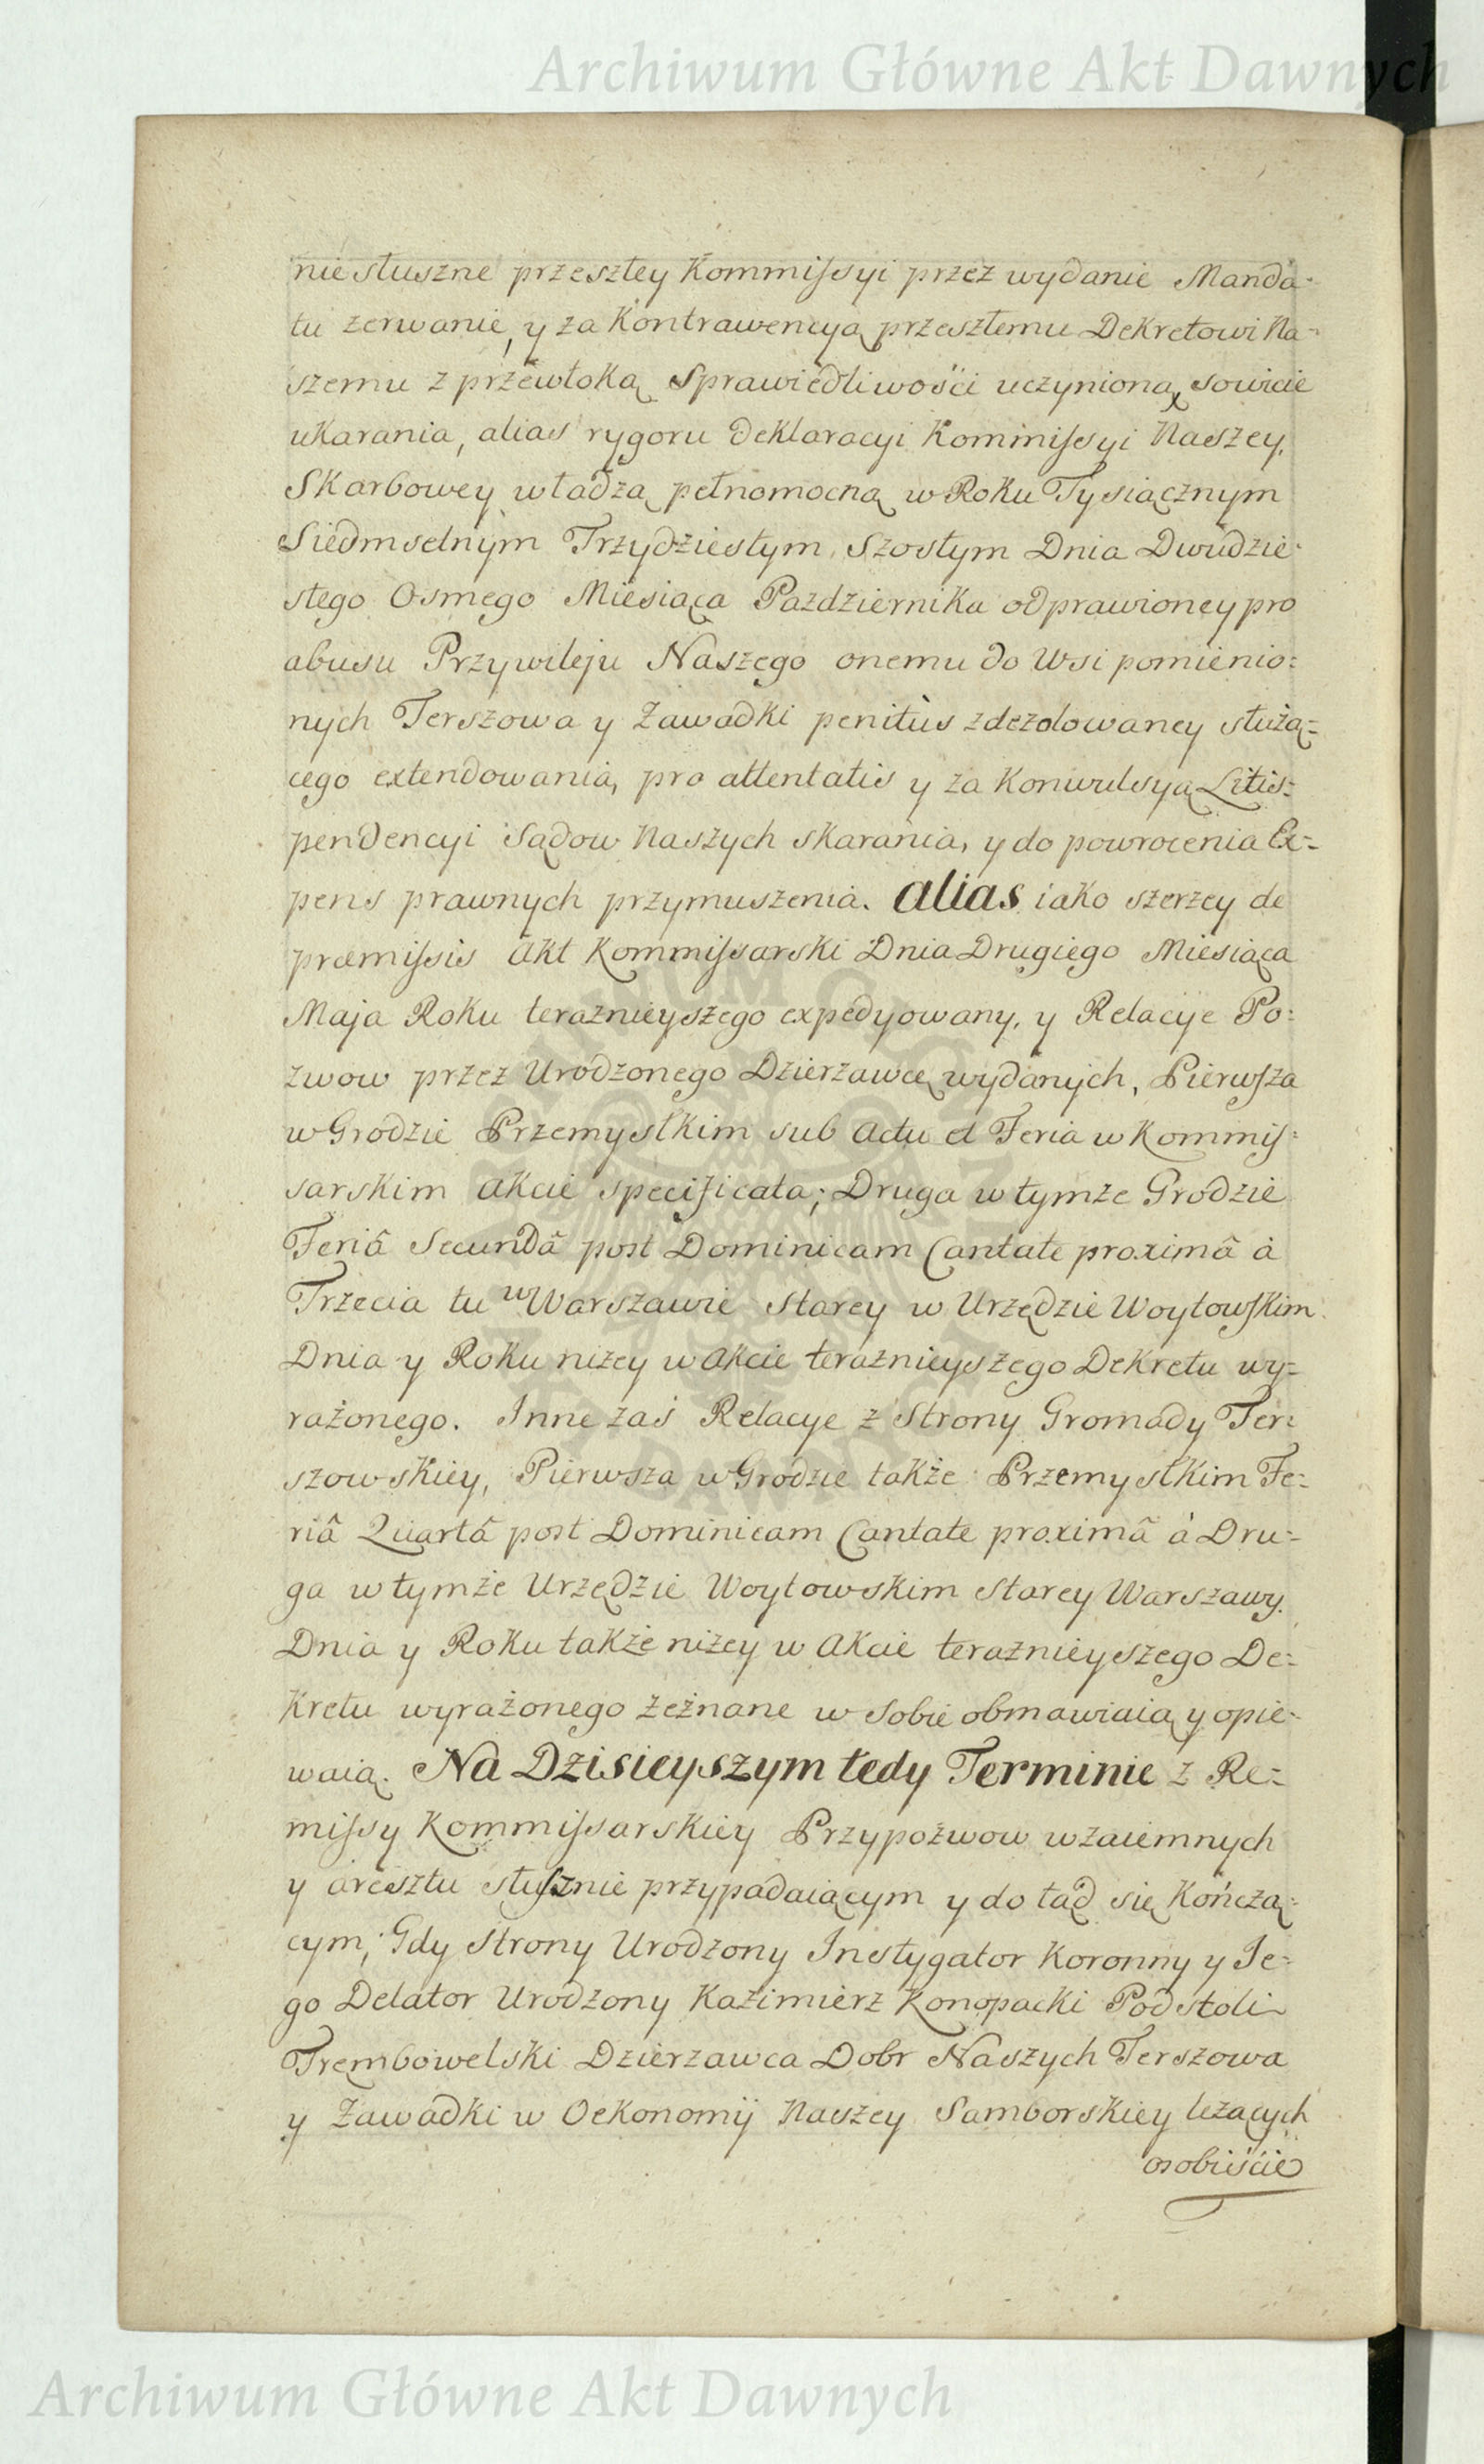 Archiwum Główne Akt Dawnych
niesłuszne przeszłey Kommissyi przez wydanie Manda-
tu zerwanie, y za Kontrawencyą przeszłemu Dekretowi Na-
szemu z przewłoką Sprawiedliwości uczynioną, sowicie
ukarania, alias rygoru deklaracyi Kommissyi Naszey,
Skarbowey władzą pełnomocną w Roku Tysiącznym
Siedmsetnym Trzydziestym Szostym Dnia Dwudzie-
stego Osmego Miesiąca Pazdziernika odprawioney pro
abusu Przywileju Naszego onemu do Wsi pomienio:
nych Terszowa y Zawadki penitùs zdezolowaney służą=
cego extendowania, pro attentatis y za Konwulsyą Litis=
pendencyi Sądow Naszych skarania, y do powrocenia Ex=
pens prawnych przymuszenia. alias iako szerzey de
præmissis Akt Kommissarski Dnia Drugiego Miesiąca
Maja Roku teraznieyszego expedyowany, y Relacye Po:
zwow przez Urodzonego Dzierzawcę wydanych, Pierwsza
w Grodzie Przemyslkim sub Actu et Feria w Kommis:
sarskim Akcie specificata; Druga w tymże Grodzie
Feriâ Secundâ post Dominicam Cantate proximâ à
Trzecia tu w Warszawie Starey w Urzędzie Woytowskim
Dnia y Roku niżey w Akcie teraznieyszego Dekretu wy=
rażonego. Inne zaś Relacye z Strony Gromady Ter:
szowskiey, Pierwsza w Grodzie także Przemyslkim Fe:
riâ Quartâ post Dominicam Cantate proximâ à Dru=
ga w tymże Urzędzie Woytowskim Starey Warszawy.
Dnia y Roku także niżey w Akcie teraznieyszego De=
kretu wyrażonego zeznane w sobie obmawiaią y opie-
waią. Na Dzisieyszym tedy Terminie z Re=
missy Kommissarskiey Przypozwow wzaiemnych
y aresztu słusznie przypadaiącym y do tąd się Kończą=
cym; Gdy Strony Urodzony Instygator Koronny y Je=
go Delator Urodzony Kazimierz Konopacki Podstoli
Trembowelski Dzierzawca Dobr Naszych Terszowa
y Zawadki w Oekonomij Naszey Samborskiey leżących
osobiście
Archiwum Główne Akt Dawnych